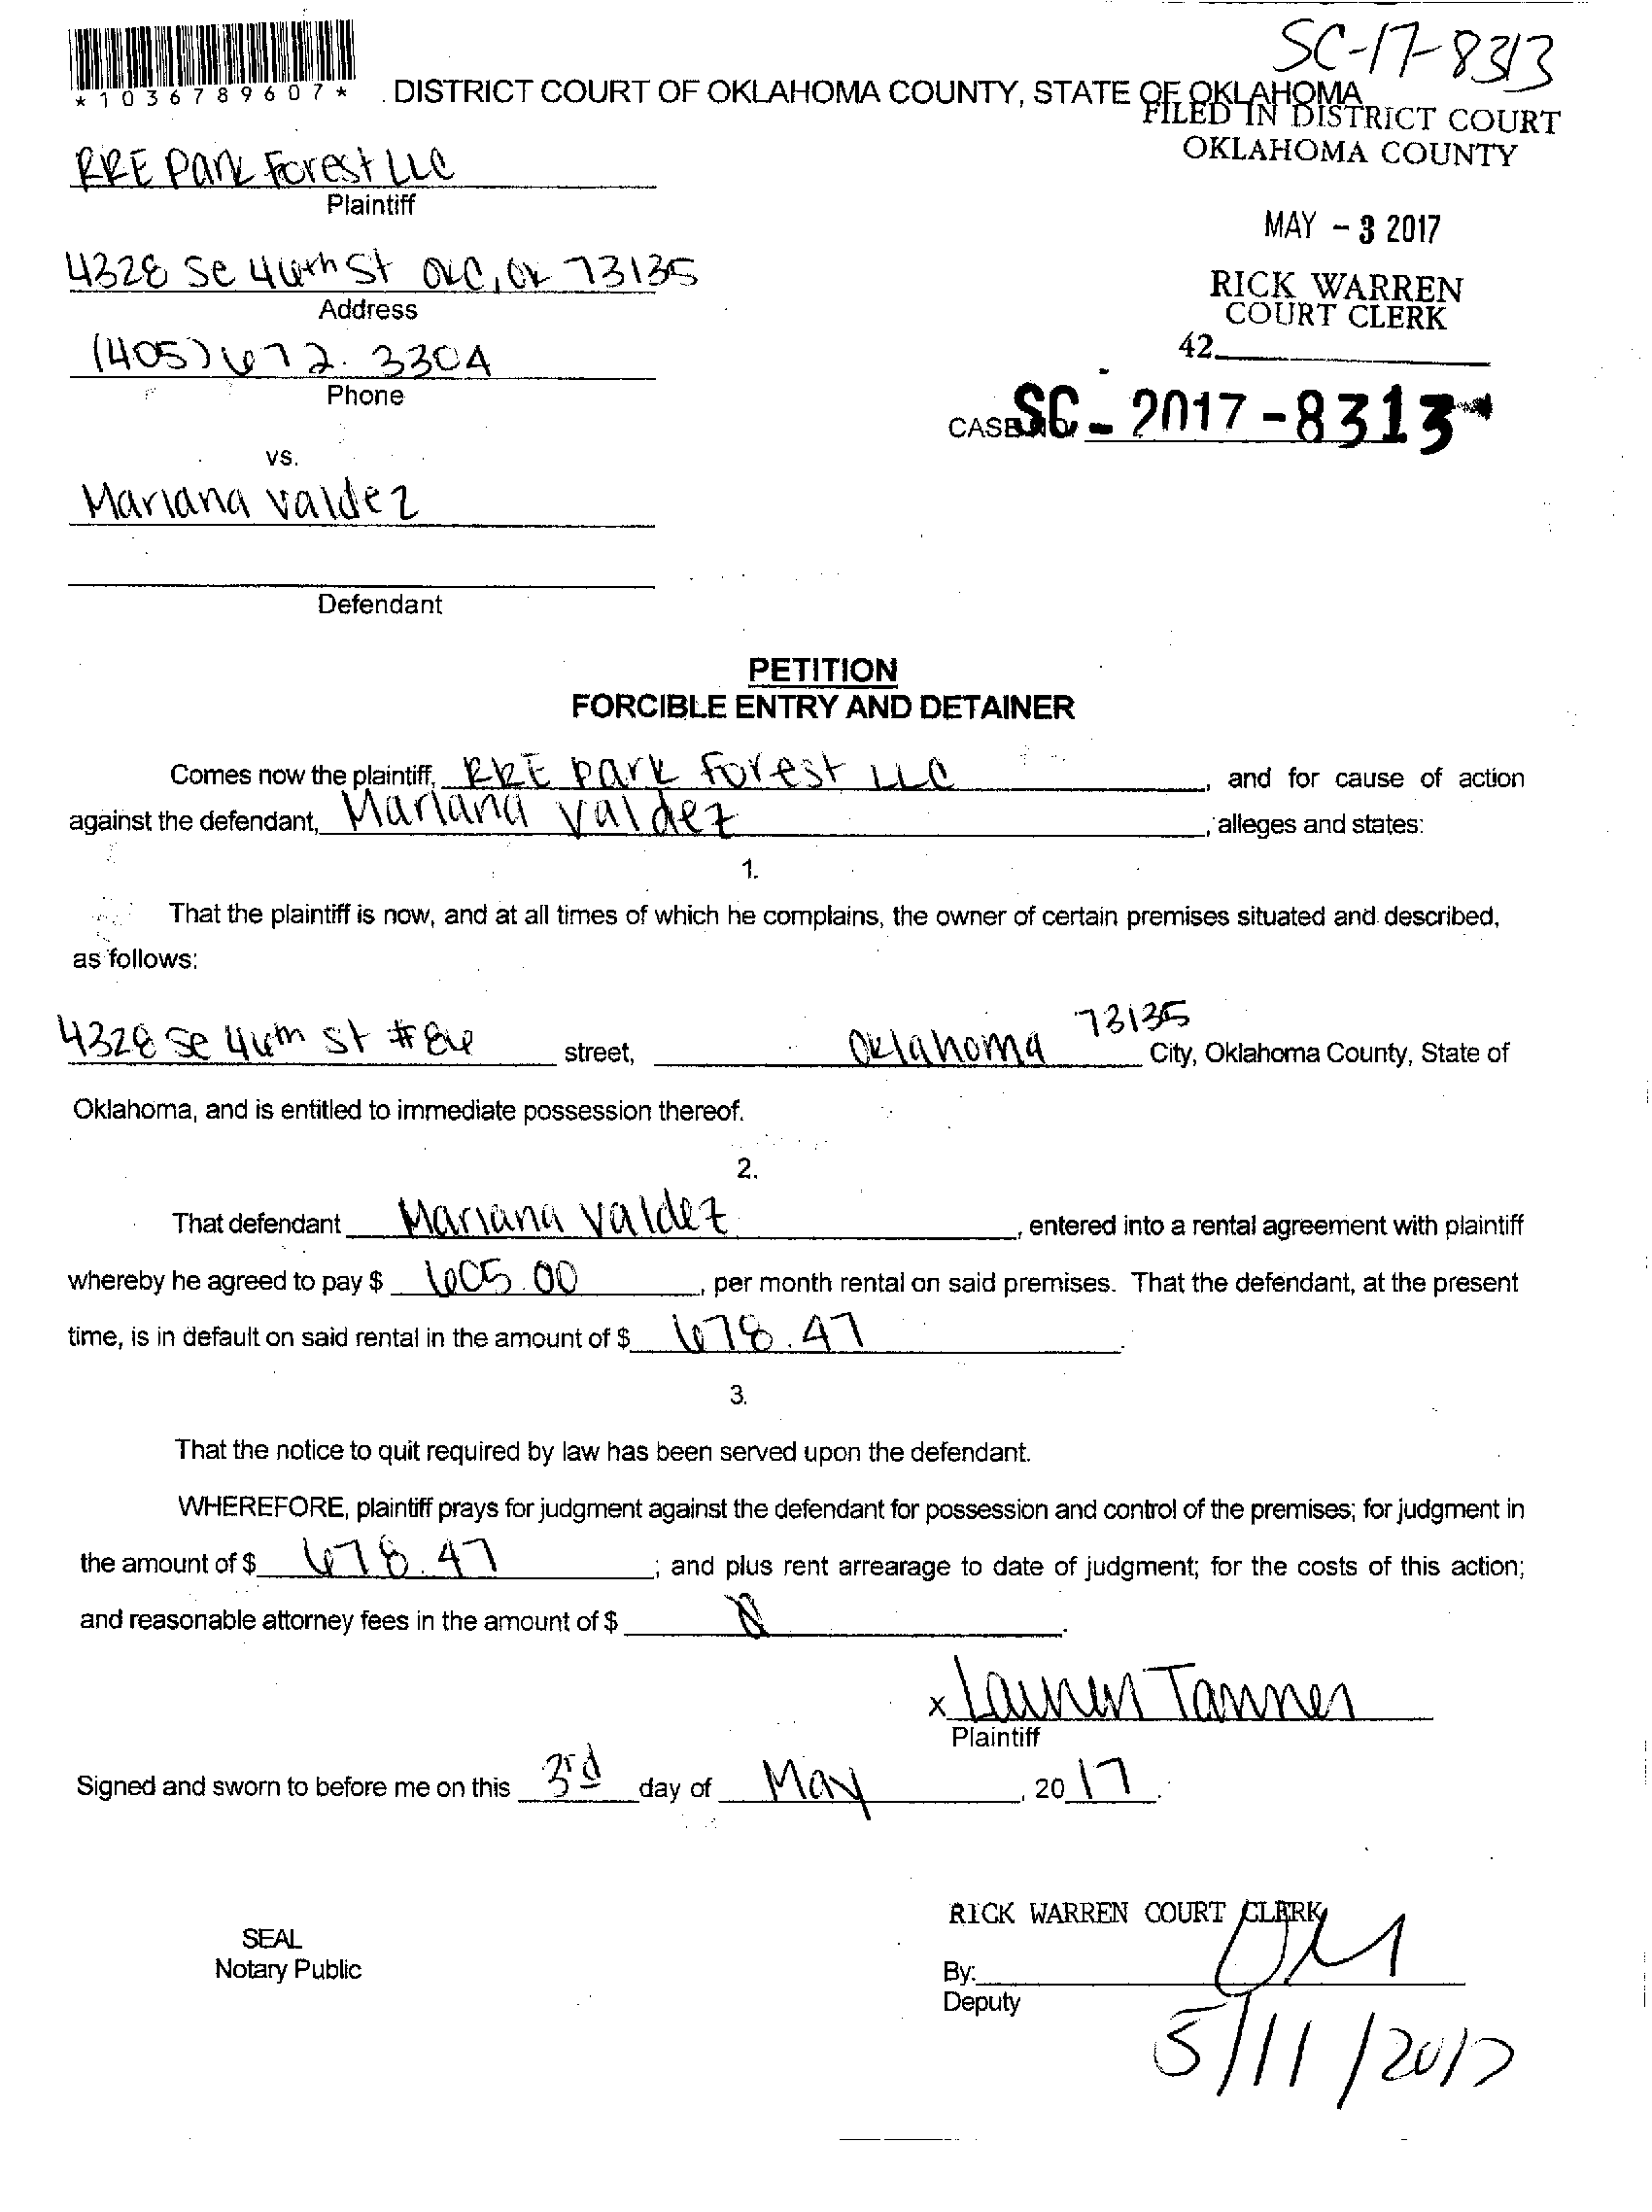 SC-17-8313
*1036789607*
DISTRICT COURT OF OKLAHOMA COUNTY, STATE OF OKLAHOMA
FILED IN DISTRICT COURT
OKLAHOMA COUNTY
RRE Park Forest LLC
Plaintiff
MAY - 3 2017
4328 Se 46th St OKC, OK 73135
Address
RICK WARREN
COURT CLERK
42
(405) 672.3304
Phone
CASE NO. SC - 2017 - 8313
vs.
Mariana Valdez
Defendant
PETITION
FORCIBLE ENTRY AND DETAINER
Comes now the plaintiff, RRE Park Forest LLC, and for cause of action
against the defendant, Mariana Valdez, alleges and states:
1.
That the plaintiff is now, and at all times of which he complains, the owner of certain premises situated and described,
as follows:
4328 Se 46th St #86 street, Oklahoma 73135 City, Oklahoma County, State of
Oklahoma, and is entitled to immediate possession thereof.
2.
That defendant Mariana Valdez, entered into a rental agreement with plaintiff
whereby he agreed to pay $ 605.00, per month rental on said premises. That the defendant, at the present
time, is in default on said rental in the amount of $ 678.47.
3.
That the notice to quit required by law has been served upon the defendant.
WHEREFORE, plaintiff prays for judgment against the defendant for possession and control of the premises; for judgment in
the amount of $ 678.47; and plus rent arrearage to date of judgment; for the costs of this action;
and reasonable attorney fees in the amount of $
x Lauren Tanner
Plaintiff
Signed and sworn to before me on this 3rd day of May, 2017.
RICK WARREN COURT CLERK
SEAL
Notary Public
By:
Deputy
5/11/2017